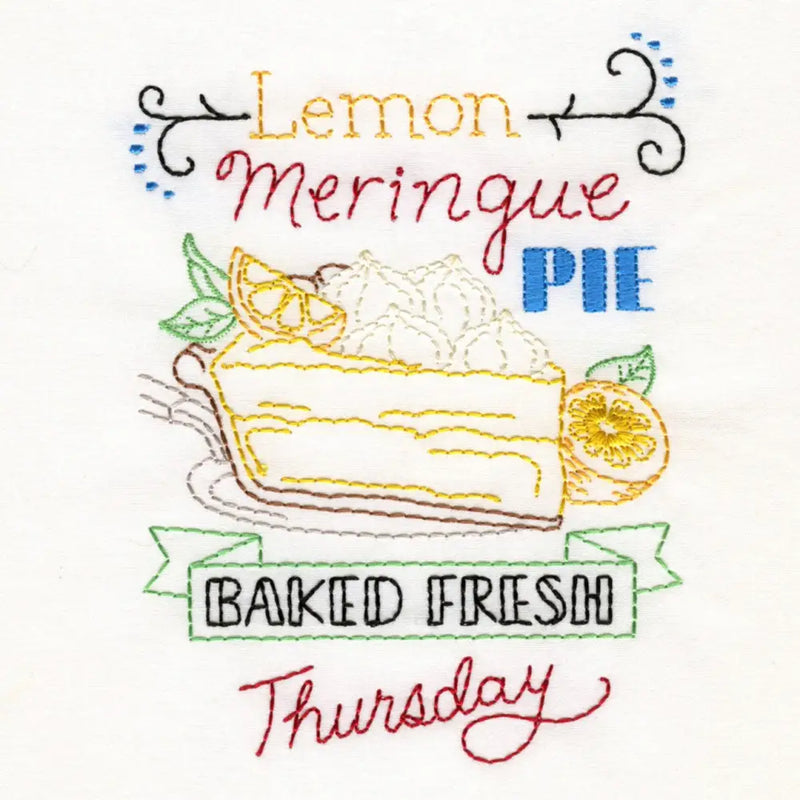 Lemon
Meringue
PIE
BAKED FRESH
Thursday